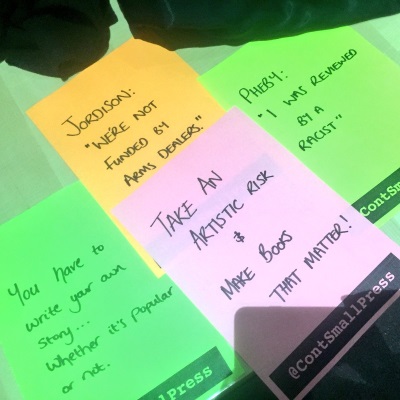 JORDISON:
"WE'RE NOT
FUNDED BY
ARMS DEALERS."
PHEBY:
"I WAS REVIEWED
BY A
RACIST"
ContSmallPress
TAKE AN
ARTISTIC RISK
&
MAKE BOOKS
THAT MATTER!
@ContSmallPress
You have to
write your own
story...
whether it's popular
or not.
llPress